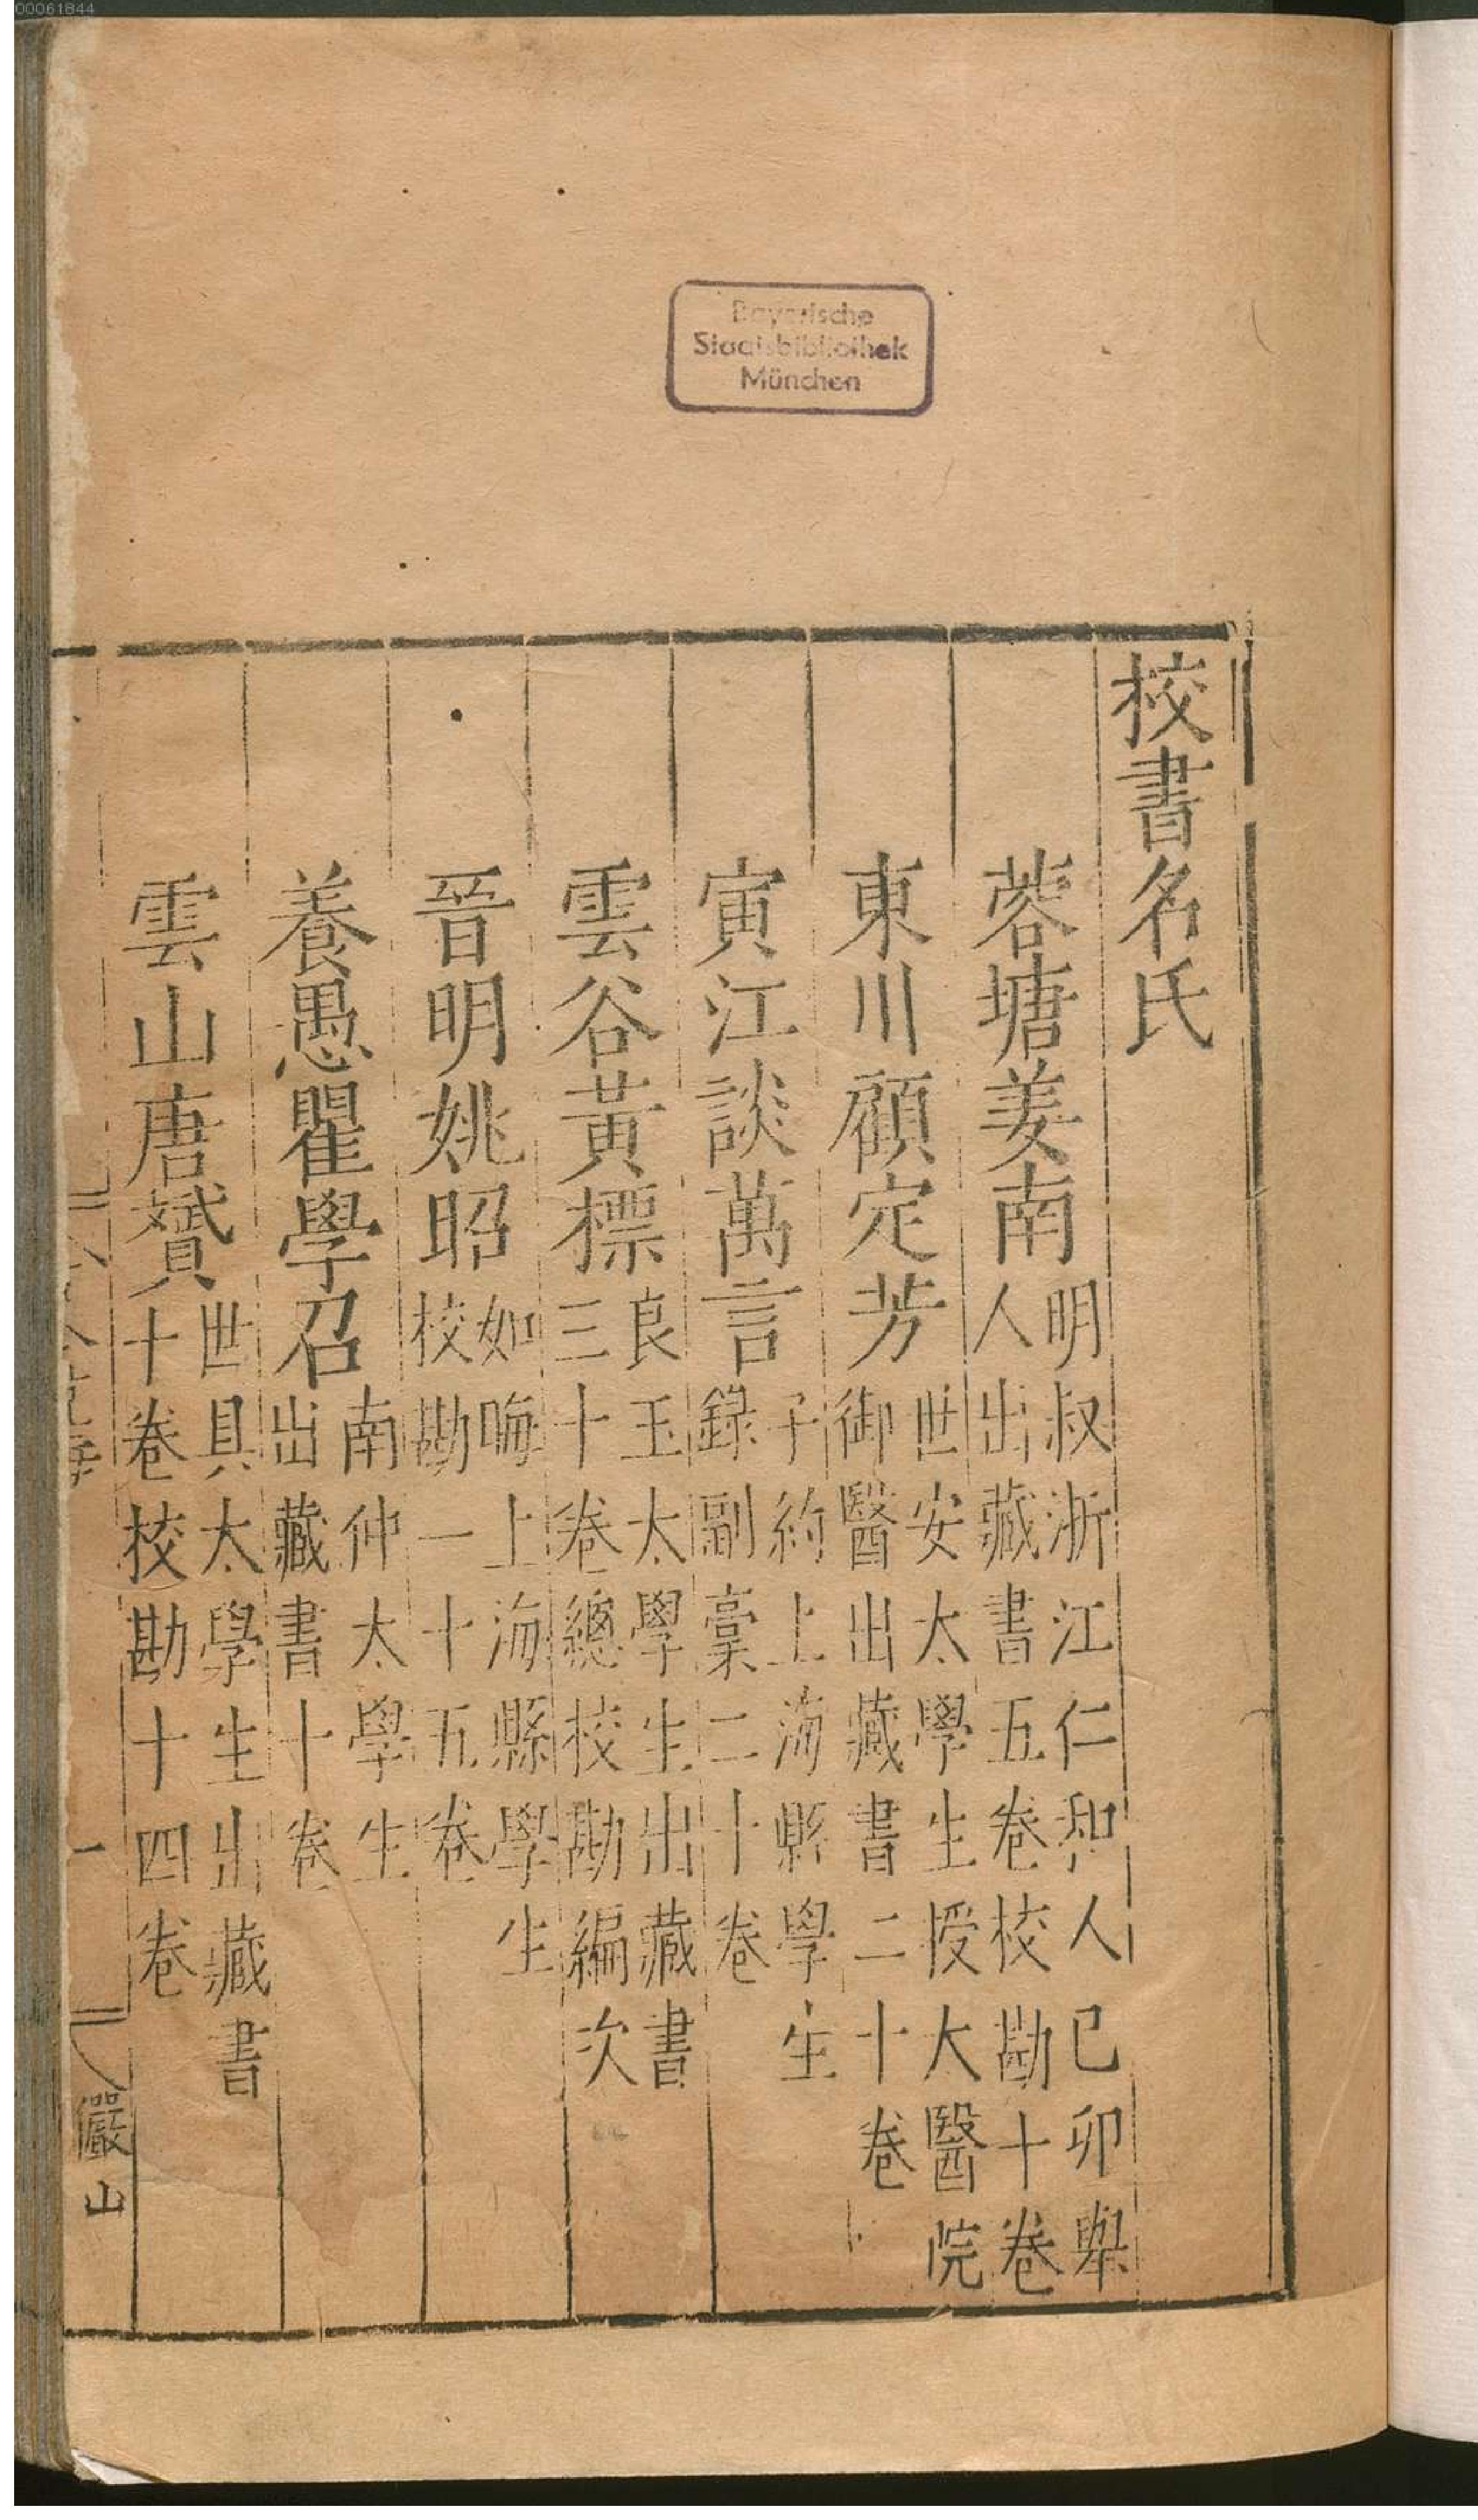 00061844
Bayerische
Staatsbibliothek
München
校書名氏
蓉塘姜南明叔浙江仁和人已卯舉
人出藏書五卷校勘十卷
東川顧定芳世安太學生授大醫院
御醫出藏書二十卷
寅江談萬言子約上海縣學生
錄副稾二十卷
雲谷黃標良玉太學生出藏書
三十卷總校勘編次
晉明姚昭如晦上海縣學生
校勘一十五卷
養愚瞿學召南仲太學生
出藏書十卷
雲山唐贇世具太學生出藏書
十卷校勘十四卷
一
儼山